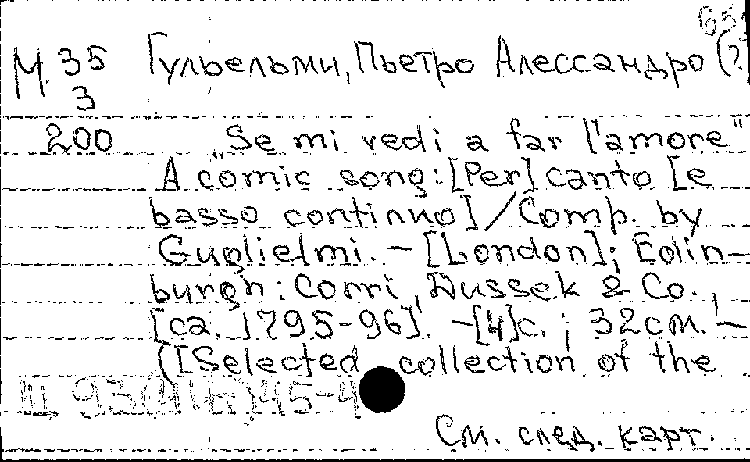 65
М 35 Гульельми, Пьетро Алессандро (?
3
200 „Se mi vedi a far l'amore"
A comic song: [Per] canto [e
basso continuo] / Comp. by
Guglielmi. – [London]; Edin-
burgh: Corri, Dussek & Co.,
[ca. 1795-96]. – [4]с.; 32см. –
([Selected collection of the
См. след. карт.